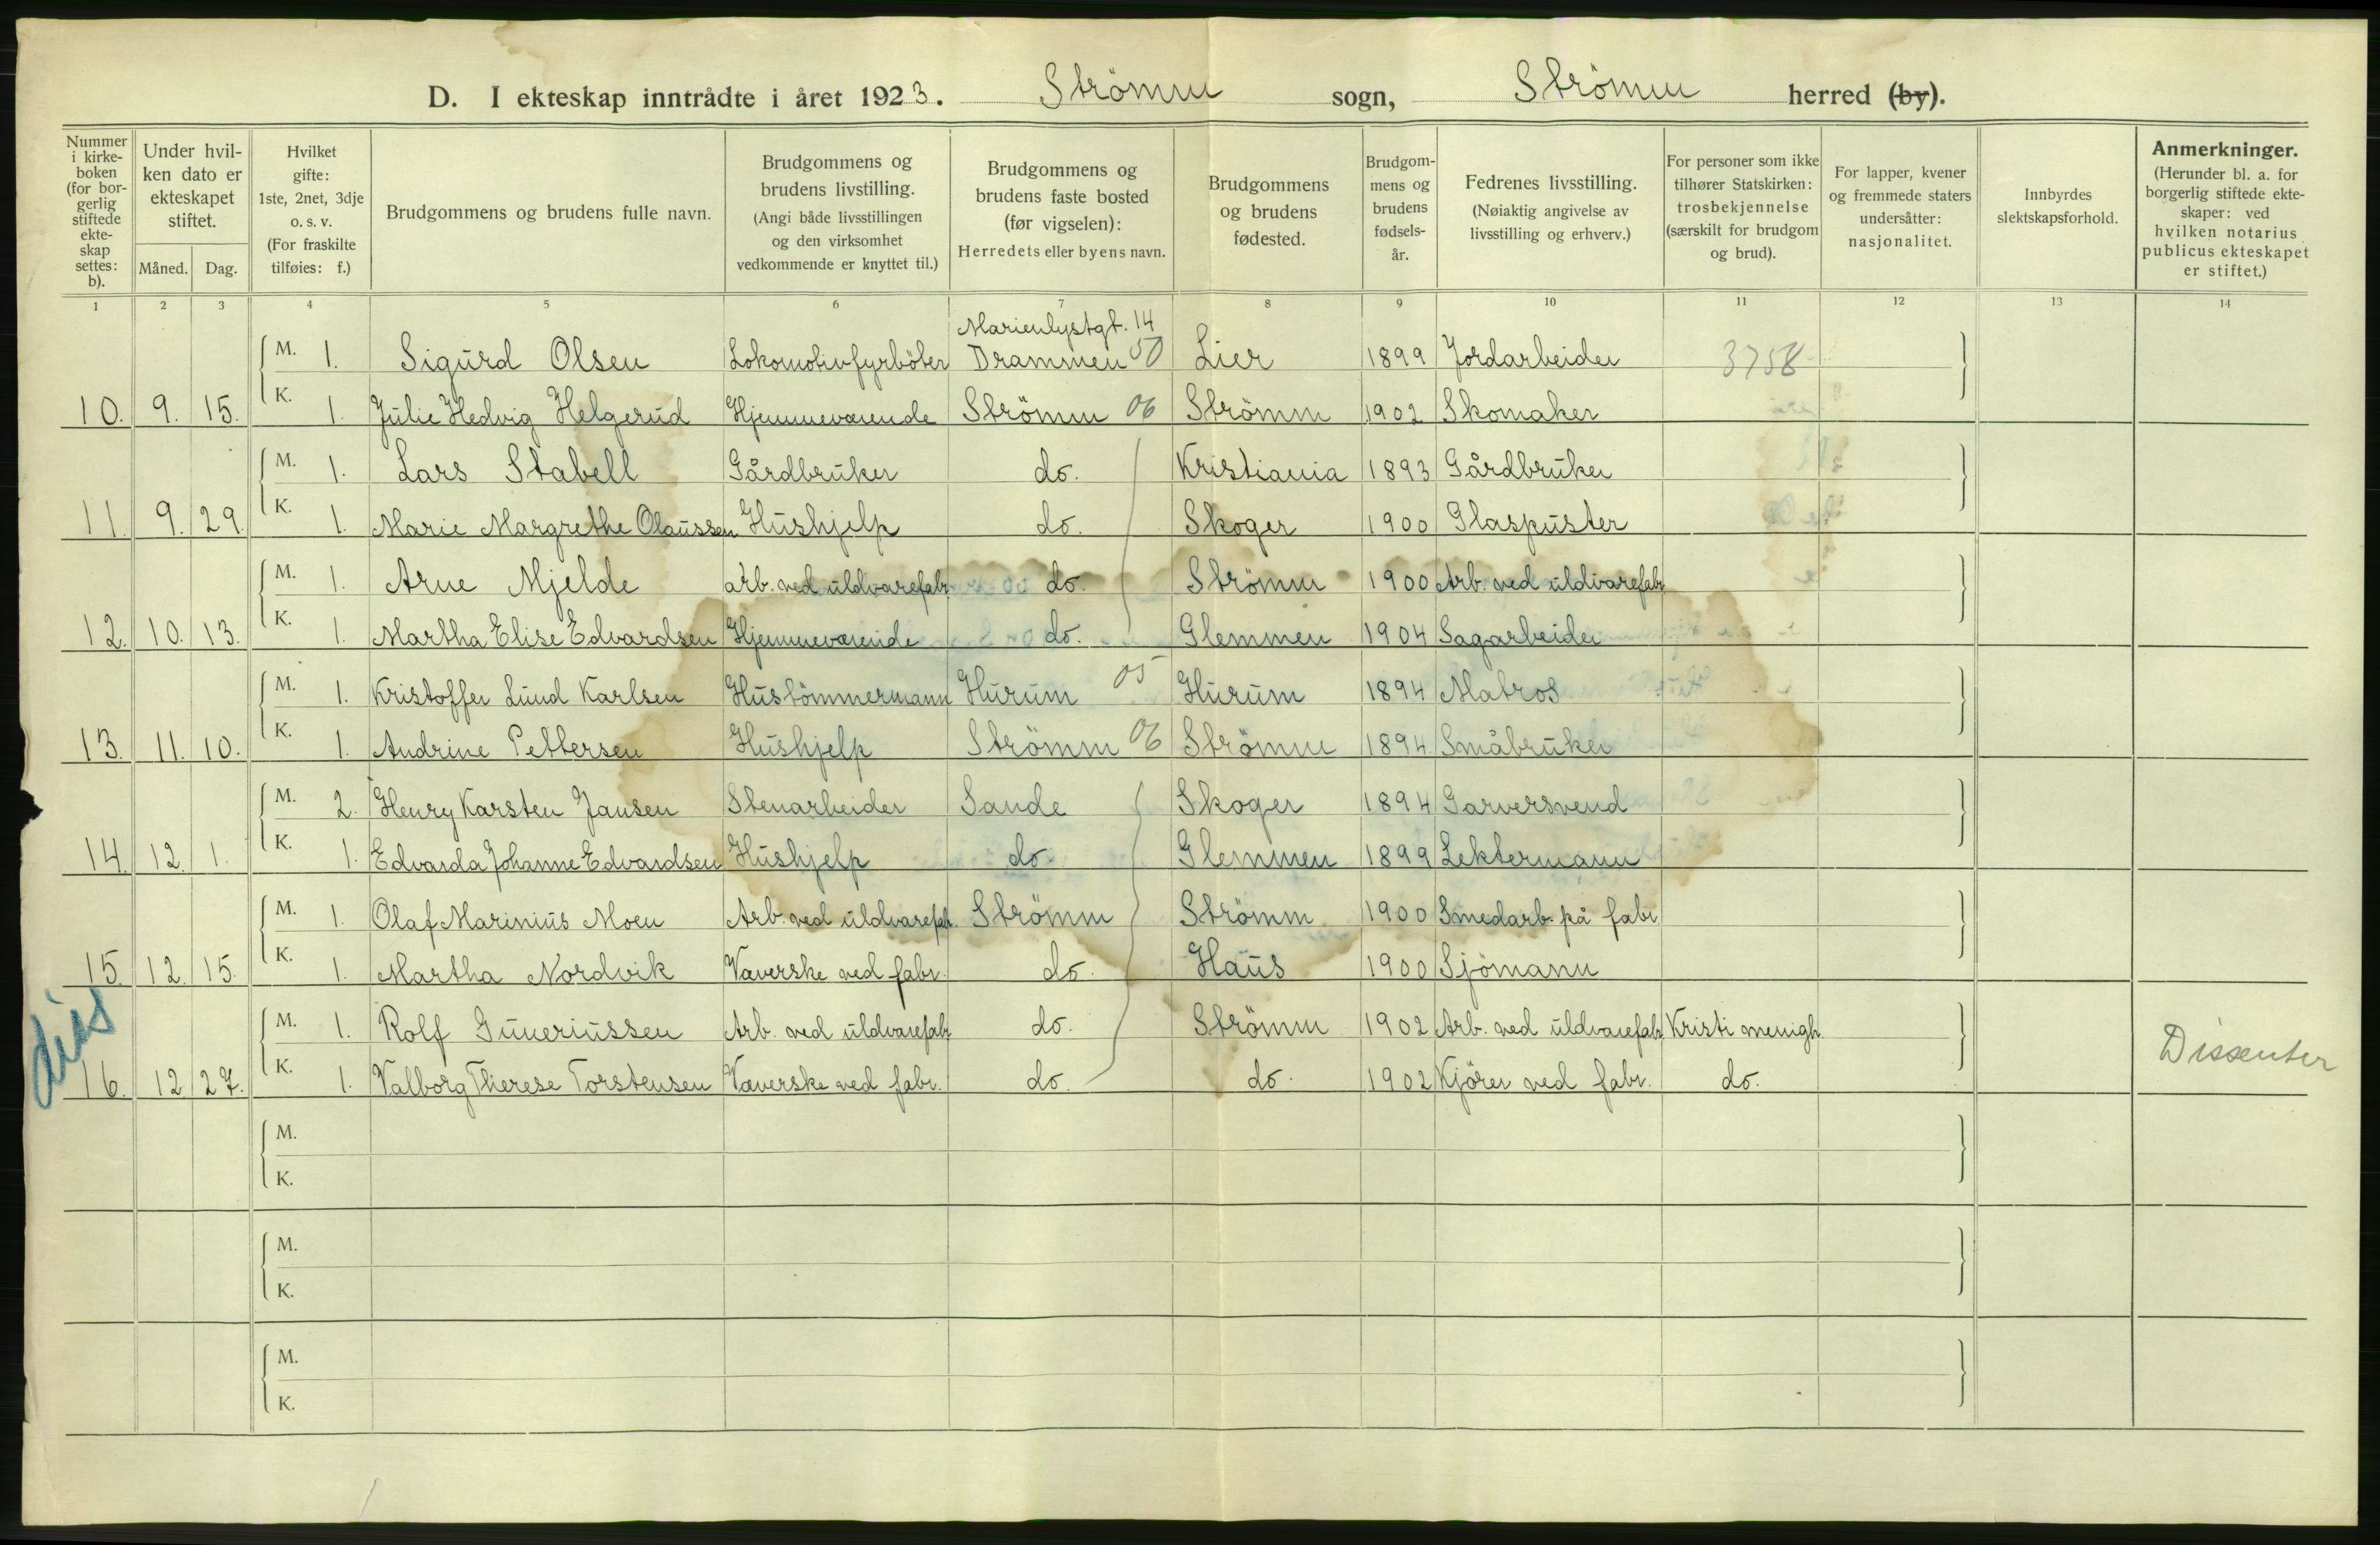 D. I ekteskap inntrådte i året 1923. Strömm sogn, Strömm herred (by).
Nummer i kirke-boken (for bor-gerlig stiftede ekte-skap settes: b).
Under hvil-ken dato er ekteskapet stiftet.
Måned. Dag.
Hvilket gifte: 1ste, 2net, 3dje o. s. v. (For fraskilte tilføies: f.)
Brudgommens og brudens fulle navn.
Brudgommens og brudens livstilling. (Angi både livsstillingen og den virksomhet vedkommende er knyttet til.)
Brudgommens og brudens faste bosted (før vigselen): Herredets eller byens navn.
Brudgommens og brudens fødested.
Brudgom-mens og brudens fødsels-år.
Fedrenes livsstilling. (Nøiaktig angivelse av livsstilling og erhverv.)
For personer som ikke tilhører Statskirken: trosbekjennelse (særskilt for brudgom og brud).
For lapper, kvener og fremmede staters undersåtter: nasjonalitet.
Innbyrdes slektskapsforhold.
Anmerkninger. (Herunder bl. a. for borgerlig stiftede ekte-skaper: ved hvilken notarius publicus ekteskapet er stiftet.)
1 2 3 4 5 6 7 8 9 10 11 12 13 14
Marienlystgt. 14
M. 1. Sigurd Olsen Lokomotivfyrböter Drammen 50 Lier 1899 Jordarbeider 3758
10. 9. 15. K. 1. Julie Hedvig Helgerud Hjemmeværende Strömm 06 Strömm 1902 Skomaker
M. 1. Lars Stabell Gårdbruker do. Kristiania 1893 Gårdbruker
11. 9. 29. K. 1. Marie Margrethe Olaussen Hushjelp do. Skoger 1900 Glaspuster
M. 1. Arne Mjelde arb. ved uldvarefabr. do. Strömm 1900 Arb. ved uldvarefabr
12. 10. 13. K. 1. Martha Elise Edvardsen Hjemmeværende do. Glemmen 1904 Sagarbeider
M. 1. Kristoffer Lund Karlsen Hustömmermann Hurum 05 Hurum 1894 Matros
13. 11. 10. K. 1. Andrine Pettersen Hushjelp Strömm 06 Strömm 1894 Småbruker
M. 2. Henry Karsten Jansen Stenarbeider Sande Skoger 1894 Garversvend
14. 12. 1. K. 1. Edvarda Johanne Edvardsen Hushjelp do Glemmen 1899 Lektermann
M. 1. Olaf Marinius Moen Arb. ved uldvarefabr. Strömm Strömm 1900 Smedarb. på fabr
15. 12. 15. K. 1. Martha Nordvik Væverske ved fabr. do. Haus 1900 Sjömann
diss
M. 1. Rolf Guneriussen Arb. ved uldvarefabr do. Strömm 1902 Arb. ved uldvarefabr. Kristi menigh.
16. 12 27. K. 1. Valborg Therese Torstensen Væverske ved fabr. do. do. 1902 Kjörer ved fabr. do. Dissenter
M.
K.
M.
K.
M.
K.